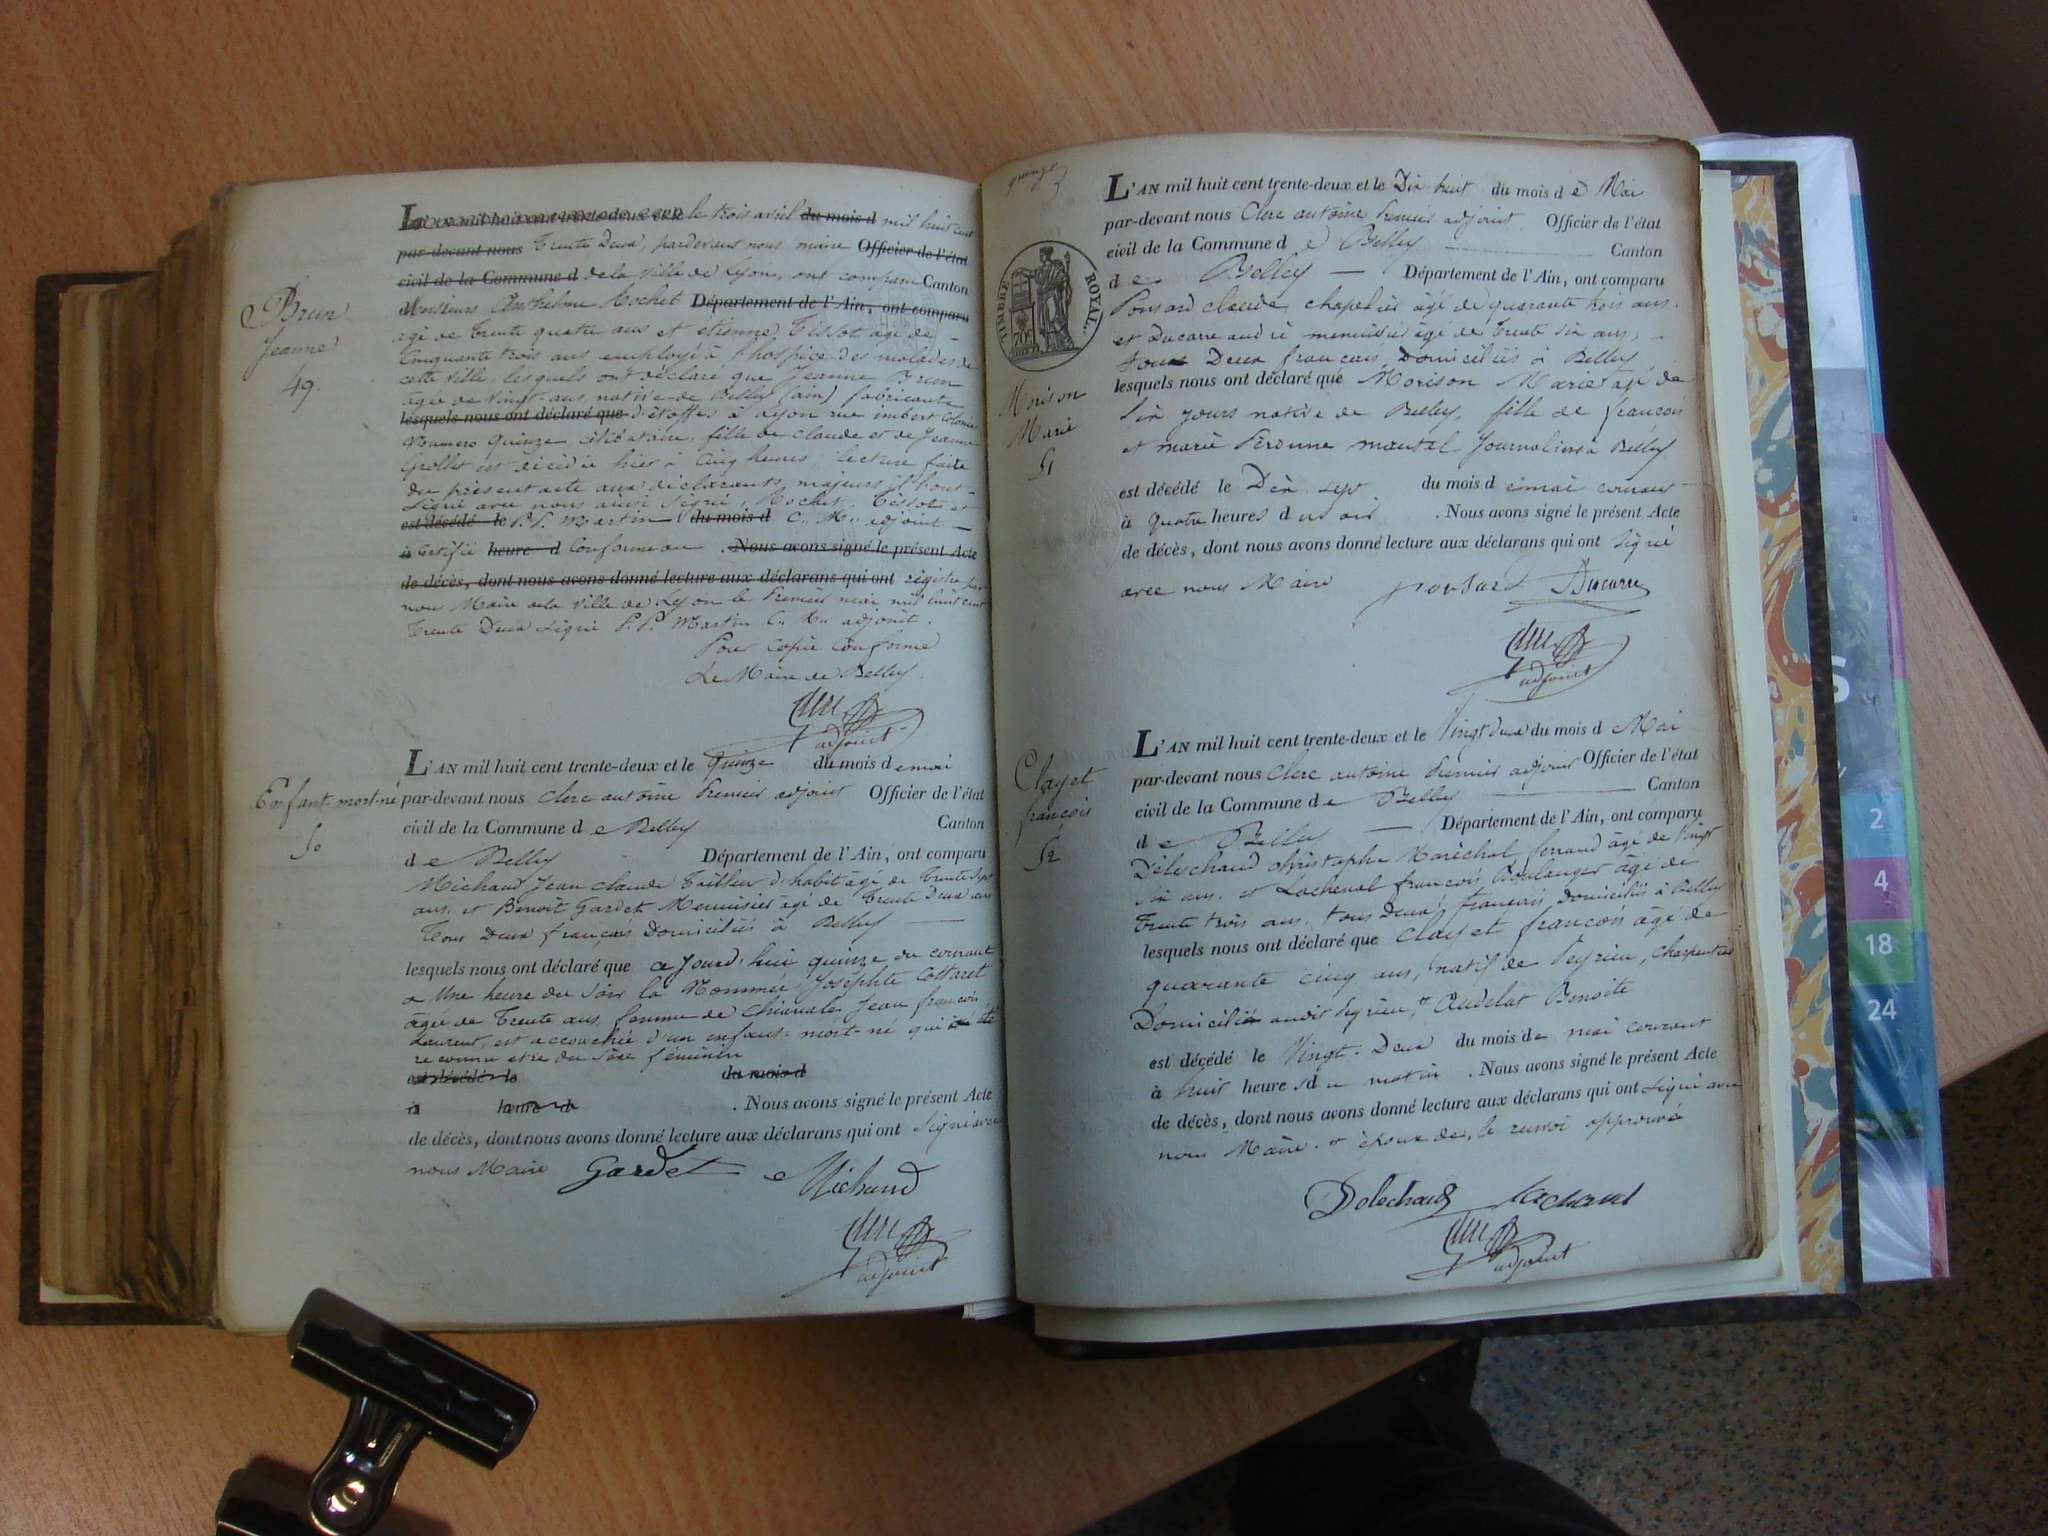 Brun
Jeanne
49.
L'AN mil huit cent trente-deux et le le trois avril du mois d mil huit cent
par-devant nous trente Deux, pardevant nous maire Officier de l'état
civil de la Commune d de la ville de Lyon, ont comparu Canton
Messieurs Anthelme Rochet Département de l'Ain, ont comparu
agé de trente quatre ans et etienne Tissot agé de
Cinquante trois ans employé à l'hospice des malades de
cette ville, lesquels ont déclaré que Jeanne Brun
agée de vingt ans, native de Belley (ain) fabricante
lesquels nous ont déclaré que d'étoffes à Lyon rue imbert Colomès
Numero quinze célibataire, fille de Claude et de Jeanne
Grollet est décédée hier à Cinq heures, lecture faite
du présent acte aux déclarants majeurs ils l'ont
Signé avec nous ainsi Signé, Rochet, Tissot et
est décédé le P. P. Martin du mois d C.. M.. adjoint
à Certifié heure d Conforme au . Nous avons signé le présent Acte
de décès, dont nous avons donné lecture aux déclarans qui ont régistre par
nous Maire de la Ville de Lyon le Premier mai mil huit cent
trente Deux Signé P. P. Martin C.. M.. adjoint.
Pour Copie Conforme
Le Maire de Belley
adjoint
Enfant mort-né
50
L'AN mil huit cent trente-deux et le Quinze du mois d e mai
par-devant nous Clerc antoine Premier adjoint Officier de l'état
civil de la Commune d e Belley Canton
d e Belley Département de l'Ain, ont comparu
Michaud Jean Claude Tailleur d'habit âgé de trente Sept
ans, et Benoit Gardet Menuisier âgé de trente Deux ans
tous Deux français Domiciliés à Belley
lesquels nous ont déclaré que ce jourd'hui quinze du courant
a Une heure du Soir la Nommée Joséphte Cottaret
âgée de trente ans, femme de Chianale Jean françois
Laurent, est accouchée d'un enfant-mort-né qui a été
reconnu etre du Sèxe féminin
est décédé le du mois d
à heure d . Nous avons signé le présent Acte
de décès, dont nous avons donné lecture aux déclarans qui ont Signé avec
nous Maire Gardet Michaud
adjoint
quinze
TIMBRE ROYAL
70c
Morison
Marie
51
L'AN mil huit cent trente-deux et le Dix huit du mois d e Mai
par-devant nous Clerc antoine Premier adjoint Officier de l'état
civil de la Commune d e Belley Canton
d e Belley Département de l'Ain, ont comparu
Ponsard claude chapelier âgé de quarante trois ans.
et Ducarre andré menuisier âgé de trente Six ans,
tous Deux français, Domiciliés à Belley
lesquels nous ont déclaré que Morison Marie âgé de
Six jours native de Belley, fille de françois
et marie Péronne mantel Journaliers à Belley
est décédé le Dix sept du mois d e mai courant
à quatre heures d u soir . Nous avons signé le présent Acte
de décès, dont nous avons donné lecture aux déclarans qui ont signé
avec nous Maire ponsard Ducarre
adjoint
Clayet
françois
52
L'AN mil huit cent trente-deux et le Vingt deux du mois d Mai
par-devant nous Clerc antoine Premier adjoint Officier de l'état
civil de la Commune d e Belley Canton
d e Belley Département de l'Ain, ont comparu
Délechaud christophe Maréchal ferrand âgé de Vingt
Six ans. et Lachenal françois Boulanger âgé de
trente trois ans. tous Deux français, Domiciliés à Belley
lesquels nous ont déclaré que Clayet françois âgé de
quarante cinq ans, natif de Peyrieu, charpentier
Domicilié audit Peyrieu, Audelat Benoite
est décédé le Vingt-Deux du mois d e mai courant
à huit heure s d u matin . Nous avons signé le présent Acte
de décès, dont nous avons donné lecture aux déclarans qui ont signé avec
nous Maire. époux de, le renvoi approuvé
Delechaud Lachenal
adjoint
S
2
4
18
24